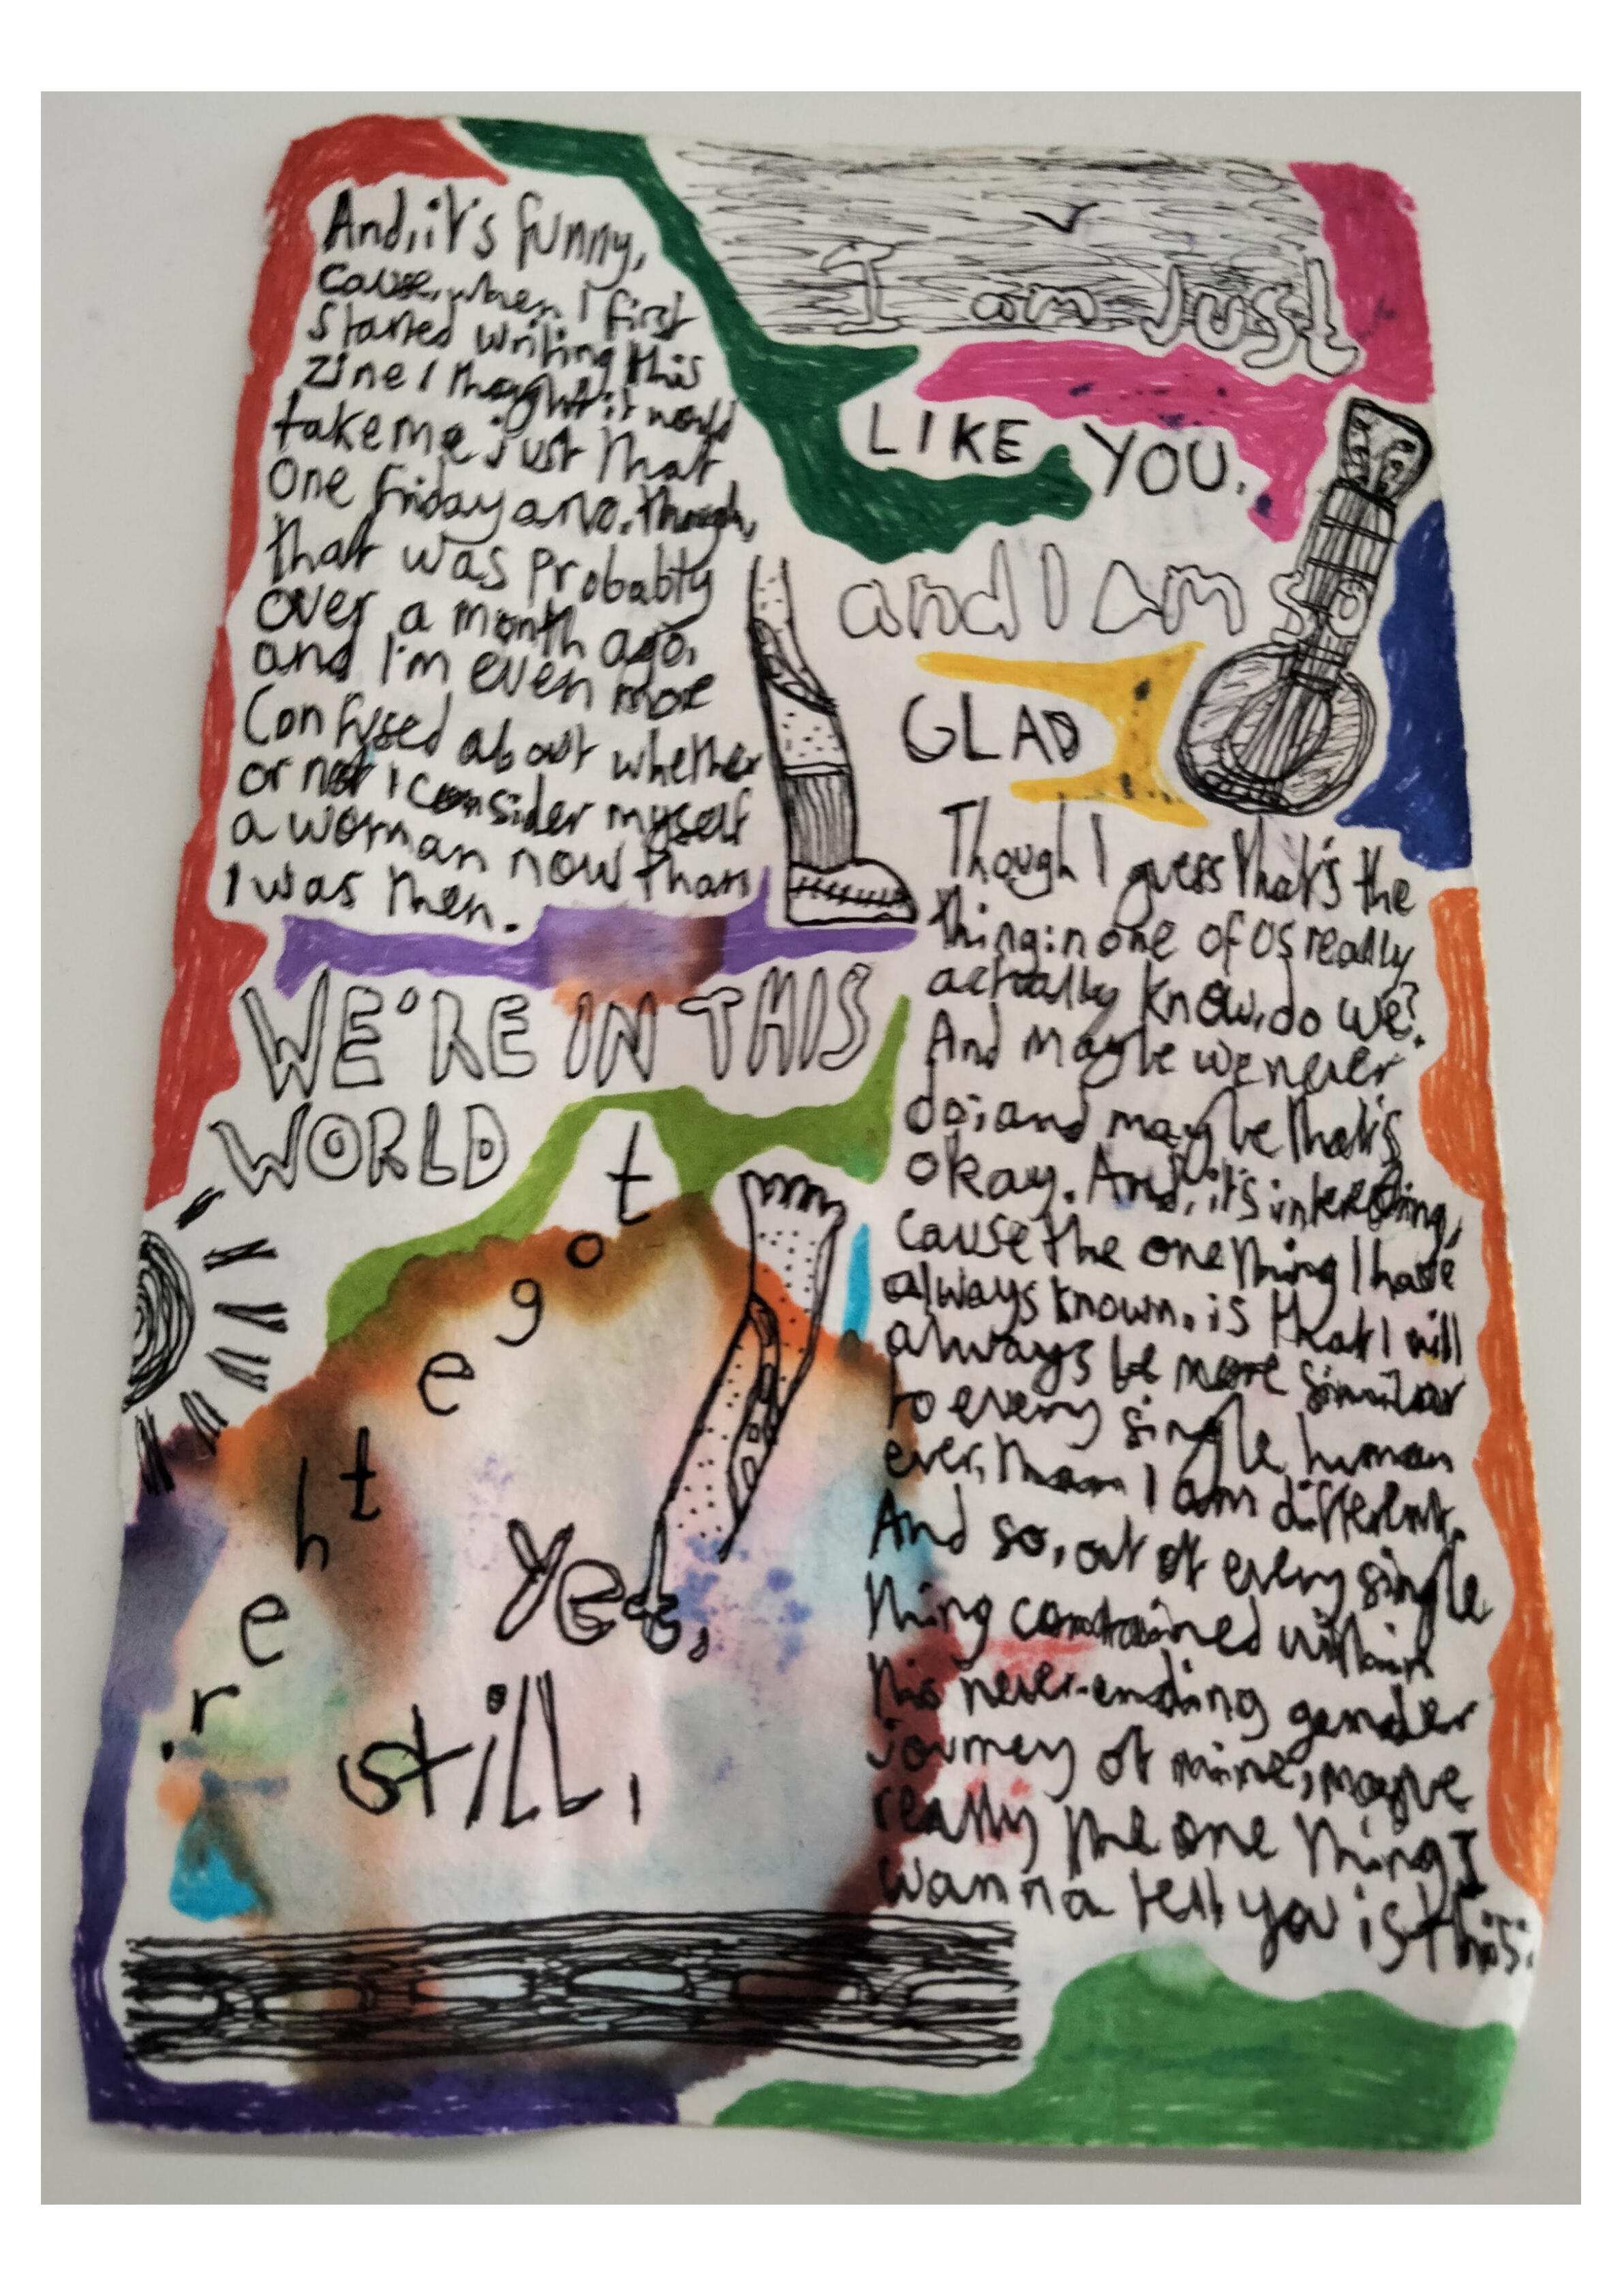 And, it's funny,
cause, when I first
started writing this
zine I thought it would
take me just that
one friday arvo. though,
that was probably
over a month ago,
and I'm even more
confused about whether
or not I consider myself
a woman now than
I was then.
Yet,
still,
Though I guess that's the
thing: none of us really
actually know, do we?
And maybe we never
do; and maybe that's
okay. And, it's interesting,
cause the one thing I have
always known, is that I will
always be more similar
to every single human
ever, than I am different.
And so, out of every single
thing contained within
this never-ending gender
journey of mine, maybe
really the one thing I
wanna tell you is this:
I am Just
LIKE YOU.
and I am so
GLAD
WE'RE IN THIS
WORLD
together.